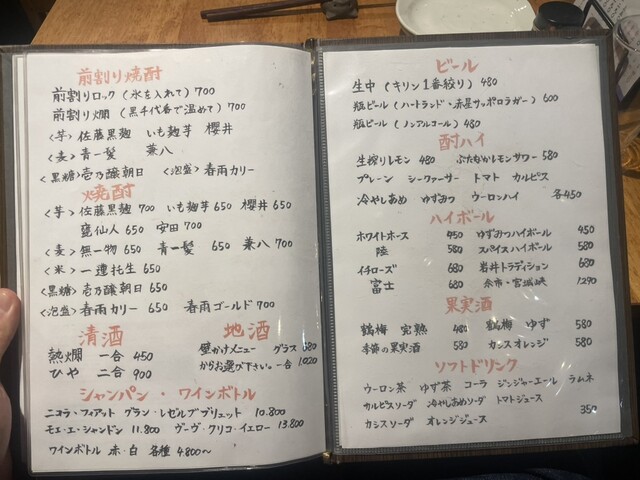 前割り焼酎
前割りロック (氷を入れて) 700
前割り燗 (黒千代香で温めて) 700
<芋> 佐藤黒麹 いも麹芋 櫻井
<麦> 青一髪 兼八
<黒糖> 壱乃醸朝日 <泡盛> 春雨カリー
焼酎
<芋> 佐藤黒麹 700 いも麹芋 650 櫻井 650
甕仙人 650 安田 700
<麦> 無一物 650 青一髪 650 兼八 700
<米> 一遭托生 650
<黒糖> 壱乃醸朝日 650
<泡盛> 春雨カリー 650 春雨ゴールド 700
清酒
熱燗 一合 450
ひや 二合 900
地酒
壁かけメニュー グラス 680
からお選び下さい。一合 1,020
シャンパン・ワインボトル
ニコラ・フィアット グラン・レゼルブブリュット 10.800
モエ・エ・シャンドン 11.800 ヴーヴ・クリコ・イエロー 13.800
ワインボトル 赤・白 各種 4.800〜
ビール
生中 (キリン1番絞り) 480
瓶ビール (ハートランド・赤星サッポロラガー) 600
瓶ビール (ノンアルコール) 480
酎ハイ
生搾りレモン 480 ぶたなかレモンサワー 580
プレーン シークァーサー トマト カルピス
冷やしあめ ゆずみつ ウーロンハイ 各450
ハイボール
ホワイトホース 450 ゆずみつハイボール 450
陸 580 スパイスハイボール 580
イチローズ 680 岩井トラディション 680
富士 680 余市・宮城峡 1.290
果実酒
鶴梅 完熟 480 鶴梅 ゆず 580
季節の果実酒 580 カシスオレンジ 580
ソフトドリンク
ウーロン茶 ゆず茶 コーラ ジンジャーエール ラムネ
カルピスソーダ 冷やしあめソーダ トマトジュース
カシスソーダ オレンジジュース 350